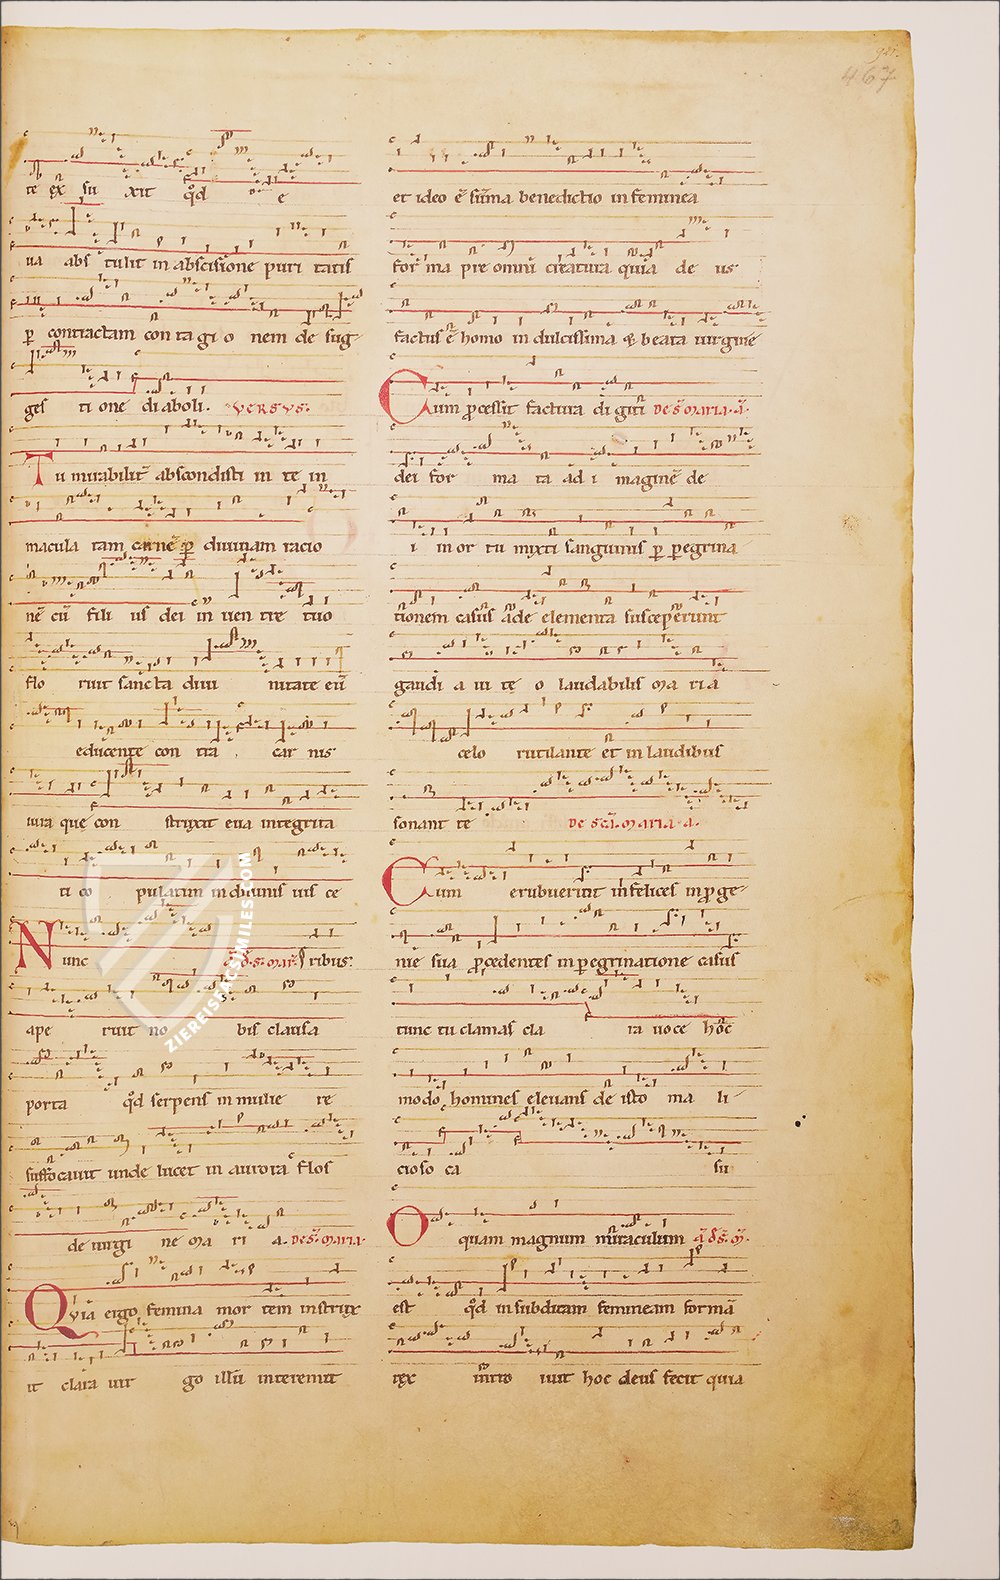 467
te ex su xit qd e
ua abs tulit in abscisione puri tatis
ꝑ contactam con ta gi o nem de sug
ges ti one diaboli. VERSVS.
Tu mirabilit̄ abscondisti in te in
macula tam carnē ꝑ diuinam racio
nē cū fili us dei in uen tre tuo
flo ruit sancta diui nitate eū
educente con tra car nis
iura que con struxit eua integrita
ti co pulatum in diuinis uis ce
Nunc ribus.
ape ruit no bis clausa
porta qd serpens in mulie re
suffocauit unde lucet in aurora flos
de uirgi ne ma ri a. DE S. MARIA.
Quia ergo femina mor tem instrux
it clara uir go illā interemit
et ideo ē sūma benedictio in feminea
for ma pre omni creatura quia de us
factus ē homo in dulcissima & beata uirgine
Cum ꝓcessit factura digiti DE S. MARIA. A.
dei for ma ta ad i maginē de
i in or tu mixti sanguinis ꝑ peregrina
tionem casus ade elementa susceperunt
gaudi a ui te o laudabilis ma ria
celo rutilante et in laudibus
sonant te DE SCI. MARIA. A.
Cum erubuerint infelices in ꝓge
nie sua ꝓcedentes in peregrinatione casus
tunc tu clamas cla ra uoce hoc
modo homines eleuans de isto ma li
cioso ca su
O quam magnum miraculum A. D. S. M.
est qd in subditam femineam formā
rex intro iuit hoc deus fecit quia
ZIEREISFACSIMILES.COM